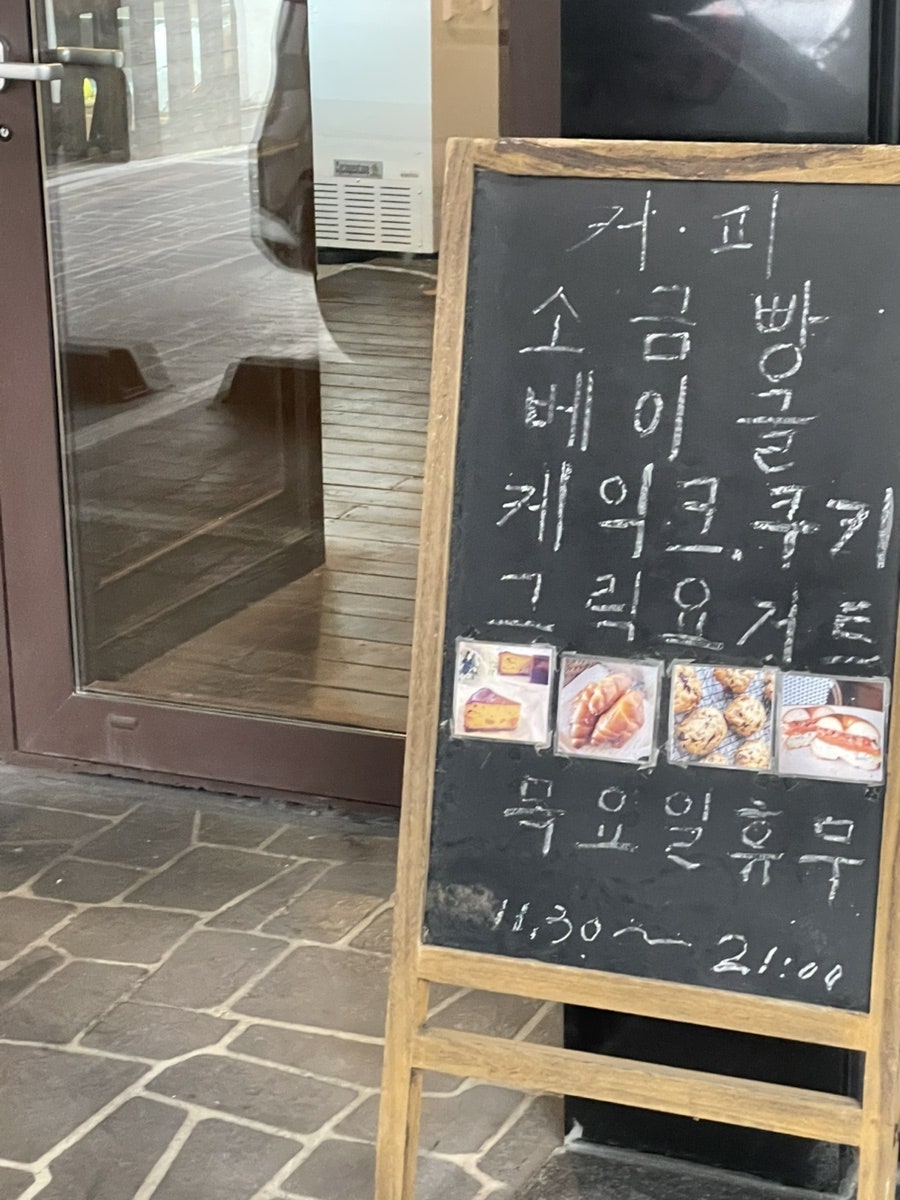 커·피
소금빵
베이글
케익크.쿠키
그릭요거트
목요일휴무
11.30~21:00